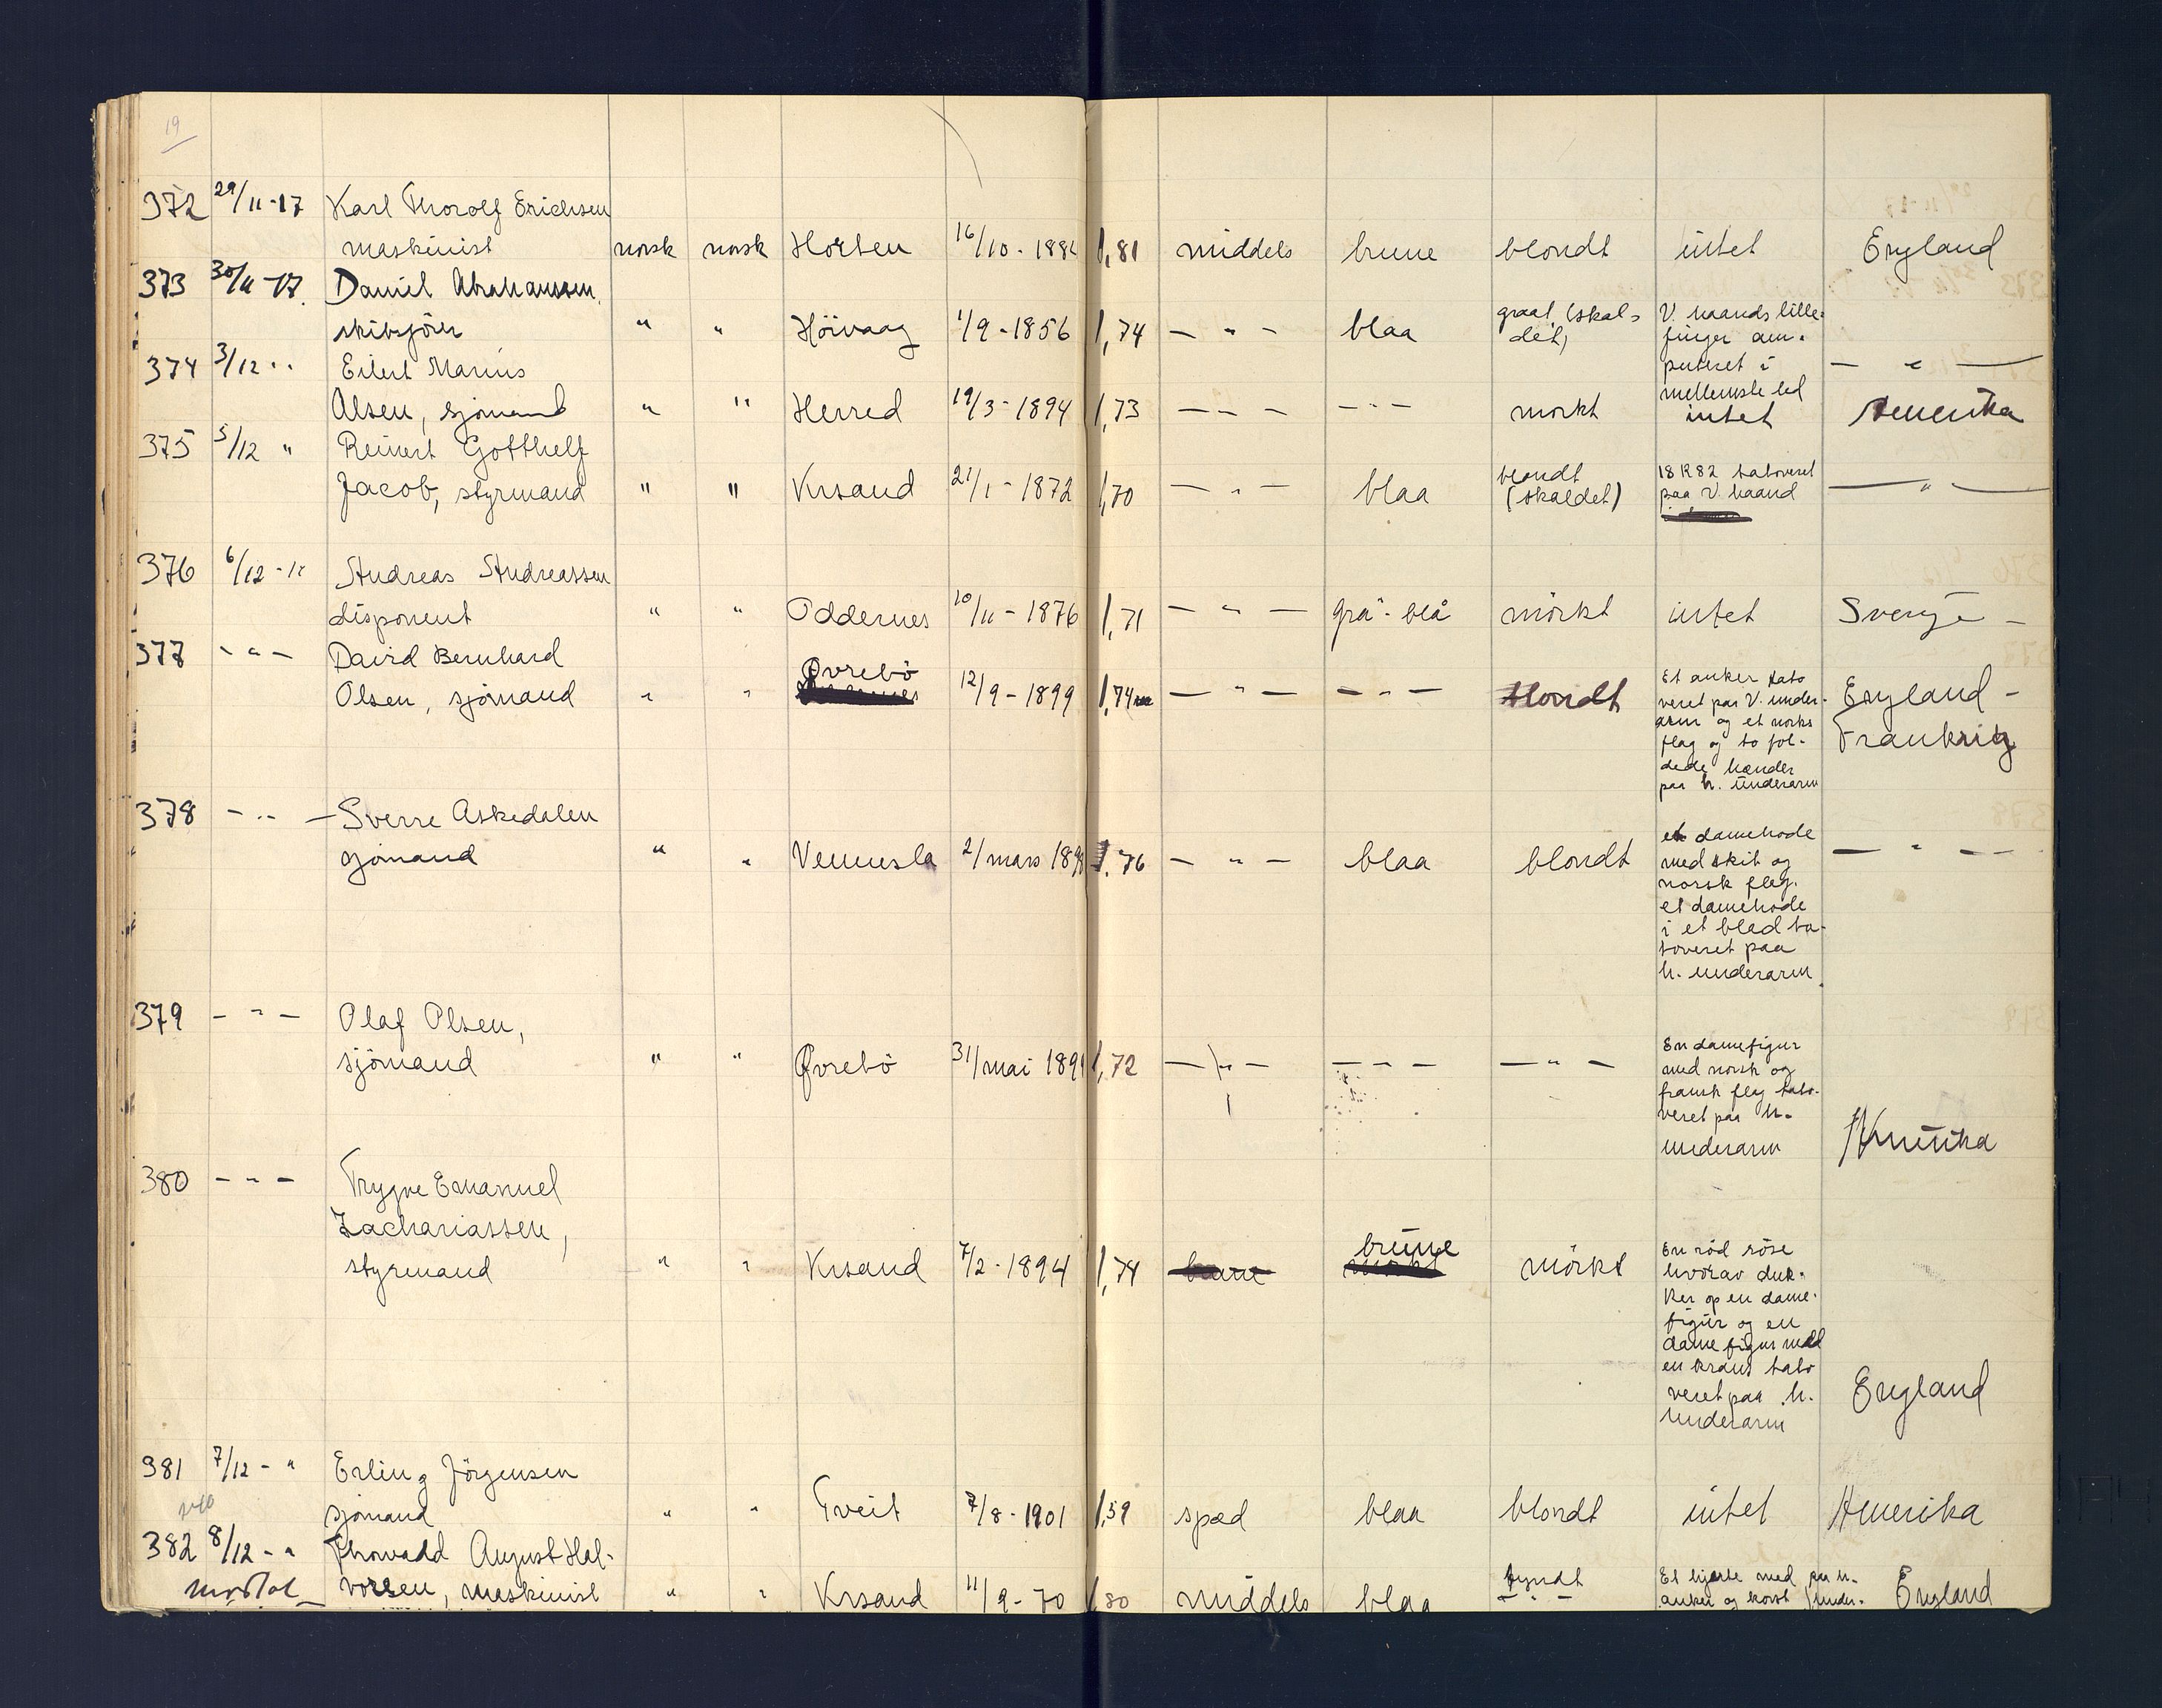 19
372 29/11-17 Karl Thorolf Erichsen
maskinist norsk norsk Horten 16/10-188 1,81 middels brune blondt intet England
373 30/11-17. Daniel Abrahamsen,
skibsförer " " Höivaag 1/9-1856 1,74 — " — blaa graat (skal-
det)
V. haands lille-
finger am-
puteret i
mellemste led
— " —
374 3/12 " Eilert Marius
Olsen, sjömand " " Herred 19/3-1894 1,73 — " — — " — mörkt intet Amerika
375 5/12 " Reinert Gotthelf
Jacob, styrmand " " Krsand 21/1-1872 1,70 — " — blaa blondt
(skaldet)
18 R 82 tatoveret
paa V. haand
— " —
376 6/12-" Andreas Andreassen
disponent " " Oddernes 10/11-1876 1,71 — " — grå-blå mörkt intet Sverige —
377 — " — David Bernhard
Olsen, sjömand " " Øvrebö 12/9-1899 1,74 — " — — " — blondt
Et anker tato
veret paa V. under-
arm og et norks
flag og to fol-
dede hænder
paa h. underarm
England -
Frankrig
378 — " — Sverre Askedalen
sjömand " " Vennesla 2/mars 189 1.76 — " — blaa blondt
et damehode
med skib og
norsk flag.
et damehode
i et blad ta-
toveret paa
h. underarm.
— " — —
379 — " — Olaf Olsen,
sjömand " " Øvrebö 31/mai 189 1,72 — " — — " — — " —
En damefigur
med norsk og
fransk flag tato-
veret paa h.
underarm
Amerika
380 — " — Trygve Emanuel
Zachariassen,
styrmand " " Krsand 7/2-1894 1,74 brune mörkt
En röd röse
hvorav duk-
ker op en dame-
figur og en
dame figur med
en krans tato
veret paa h.
underarm
England
381 7/12-" Erling Jörgensen
sjömand " " Tveit 7/8-1901 1,59 spæd blaa blondt intet Amerika
382 8/12-" Thorvald August Hal-
vorsen, maskinist " " Krsand 11/9-70 1,80 middels blaa tyndt
Et hjerte med paa h.
anker og kors under-
England